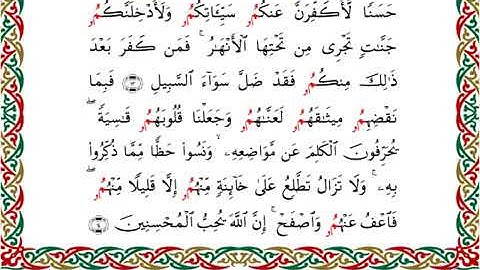 حَسَنًا لَّأُكَفِّرَنَّ عَنكُمُۥ سَيِّـَٔاتِكُمُۥ وَلَأُدْخِلَنَّكُمُۥ
جَنَّٰتٍ تَجْرِى مِن تَحْتِهَا ٱلْأَنْهَٰرُ ۚ فَمَن كَفَرَ بَعْدَ
ذَٰلِكَ مِنكُمُۥ فَقَدْ ضَلَّ سَوَآءَ ٱلسَّبِيلِ ۝ فَبِمَا
نَقْضِهِمُۥ مِيثَٰقَهُمُۥ لَعَنَّٰهُمُۥ وَجَعَلْنَا قُلُوبَهُمُۥ قَٰسِيَةً ۖ
يُحَرِّفُونَ ٱلْكَلِمَ عَن مَّوَاضِعِهِۦ ۙ وَنَسُوا۟ حَظًّا مِّمَّا ذُكِّرُوا۟
بِهِۦ ۚ وَلَا تَزَالُ تَطَّلِعُ عَلَىٰ خَآئِنَةٍ مِّنْهُمُۥ إِلَّا قَلِيلًا مِّنْهُمُۥ ۖ
فَٱعْفُ عَنْهُمُۥ وَٱصْفَحْ ۚ إِنَّ ٱللَّهَ يُحِبُّ ٱلْمُحْسِنِينَ ۝